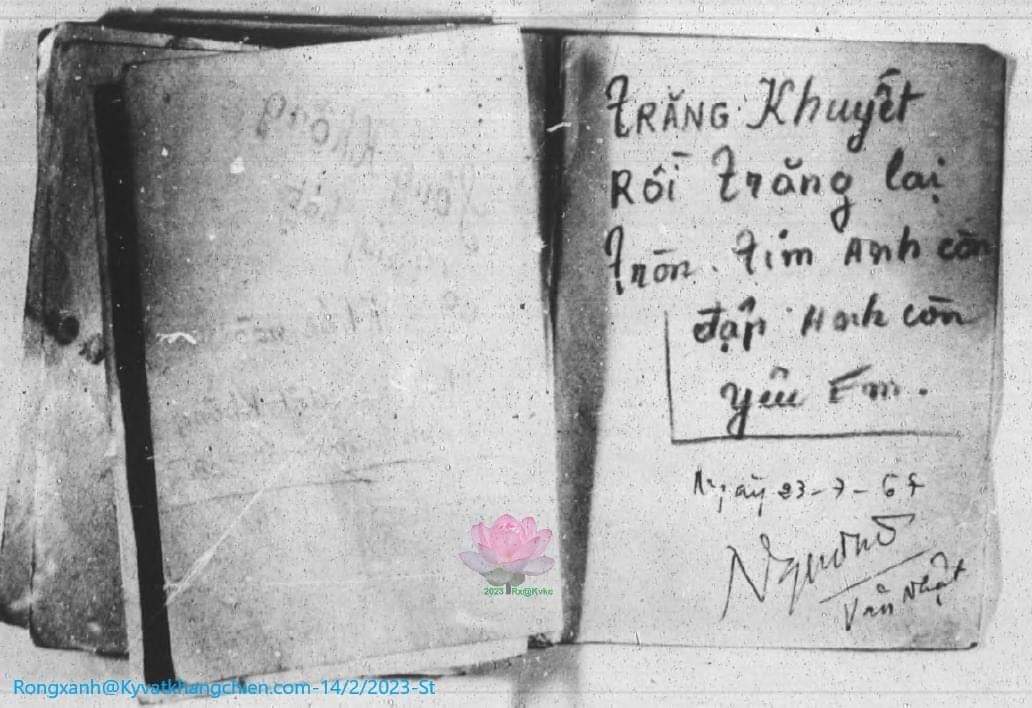 TRĂNG Khuyết
Rồi trăng lại
tròn. tim Anh còn
đập Anh còn
yêu Em.
Ngày 23-7-67
Văn Nhật
2023 Rx@Kvkc
Rongxanh@Kyvatkhangchien.com-14/2/2023-St